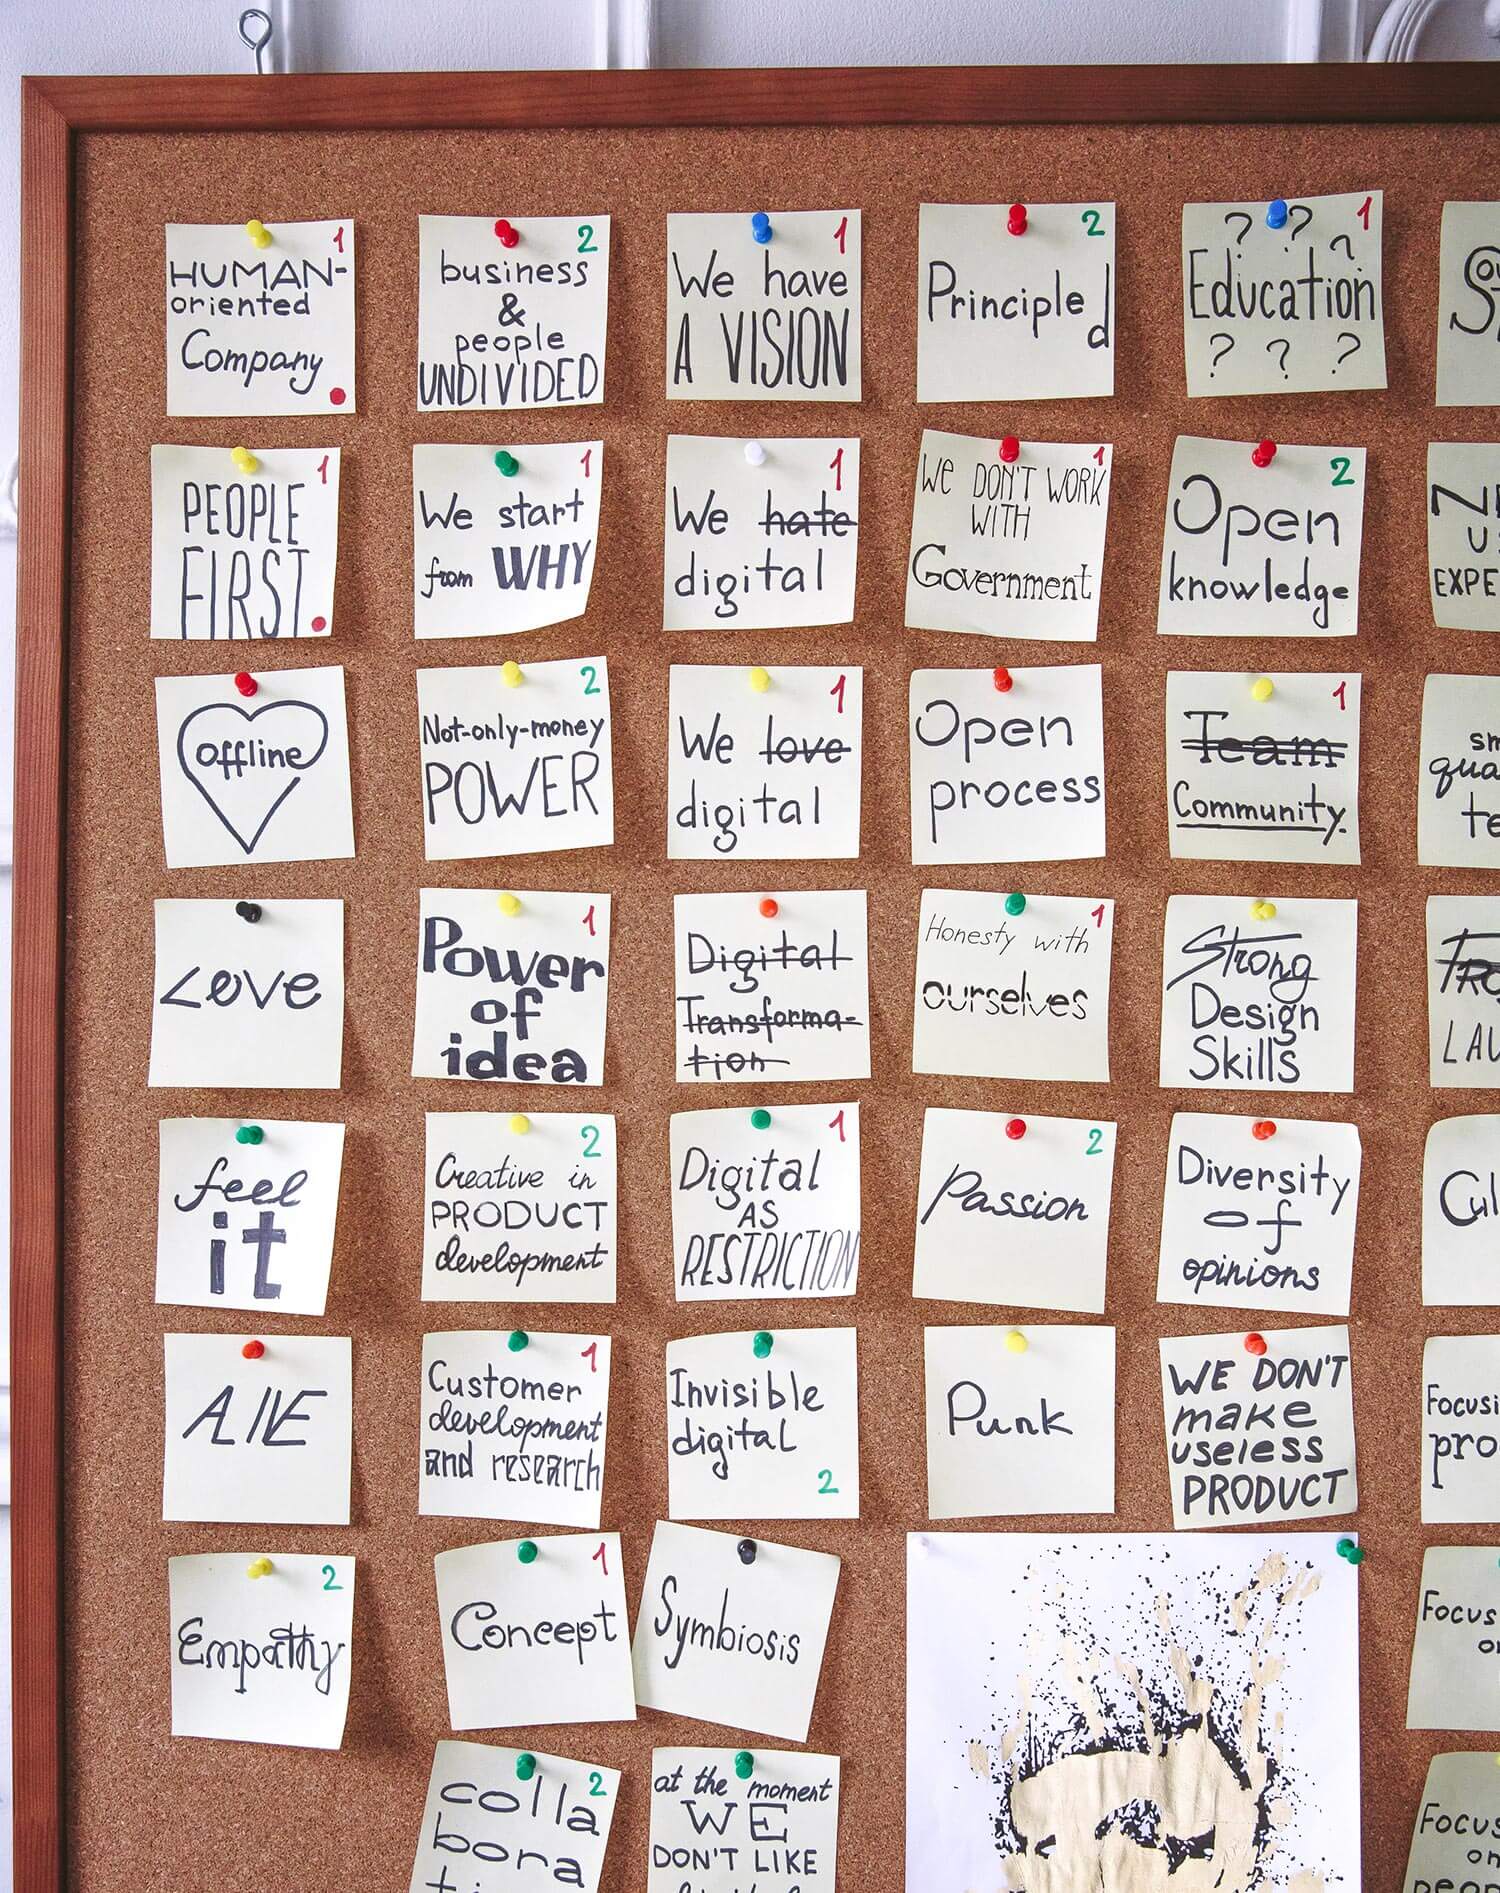 1
HUMAN-
oriented
Company
2
business
&
people
UNDIVIDED
1
We have
A VISION
2
Principled
1
? ? ?
Education
? ? ?
1
PEOPLE
FIRST
1
We start
from WHY
1
We hate
digital
1
WE DON'T WORK
WITH
Government
2
Open
knowledge
EXPE
offline
2
Not-only-money
POWER
1
We love
digital
Open
process
1
Team
Community.
sm
qua
te
Love
1
Power
of
idea
Digital
Transforma-
tion
1
Honesty with
ourselves
Strong
Design
Skills
LAU
feel
it
2
Creative in
PRODUCT
development
1
Digital
AS
RESTRICTION
2
Passion
Diversity
of
opinions
Cul
ALIVE
1
Customer
development
and research
Invisible
digital
2
Punk
WE DON'T
make
useless
PRODUCT
Focusi
pro
2
Empathy
1
Concept
Symbiosis
Focus
on
2
colla
bora
at the moment
WE
DON'T LIKE
Focus
on
peop